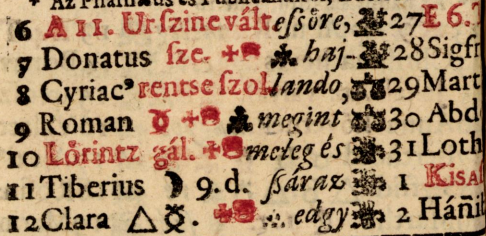 6 A 11. Ur szine vált essöre, 27 E 6.
7 Donatus sze. haj- 28 Sigfr
8 Cyriac' rentse szol lando, 29 Mart
9 Roman ☿ megint 30 Abd
10 Lörintz gál. meleg és 31 Loth
11 Tiberius ☽ 9. d. száraz 1 Kis
12 Clara △ ☿. edgy 2 Háñi